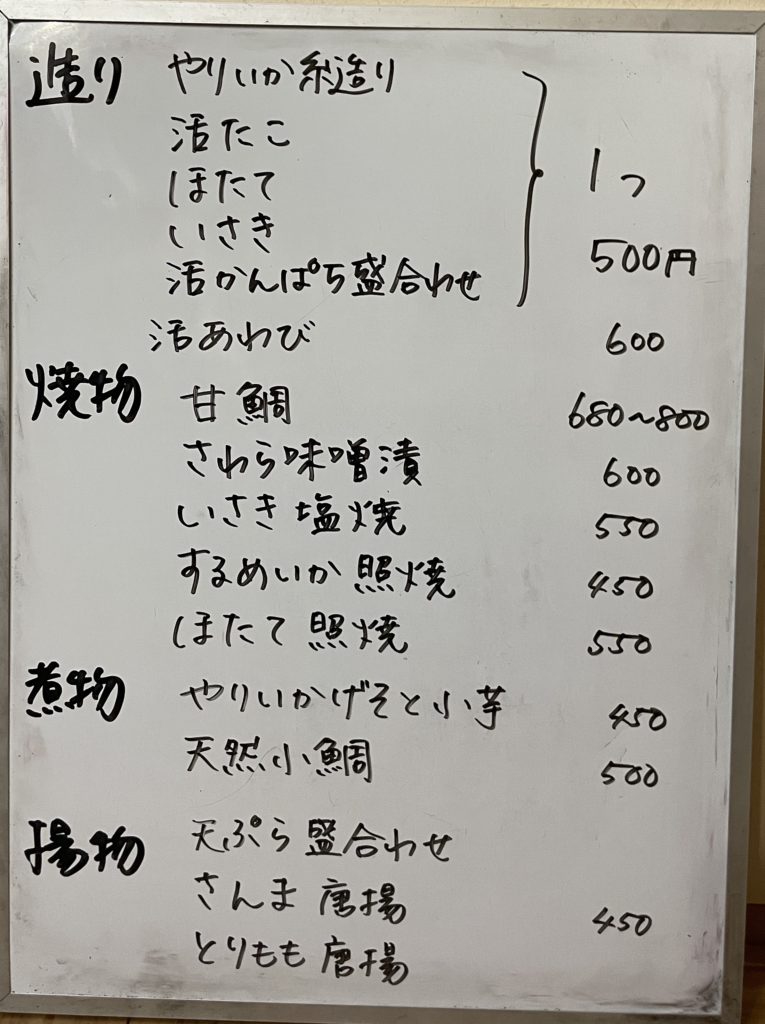 造り やりいか糸造り
活たこ
ほたて 1つ
いさき 500円
活かんぱち盛合わせ
活あわび 600
焼物 甘鯛 680~800
さわら味噌漬 600
いさき塩焼 550
するめいか照焼 450
ほたて照焼 550
煮物 やりいかげそと小芋 450
天然小鯛 500
揚物 天ぷら盛合わせ
さんま唐揚 450
とりもも唐揚